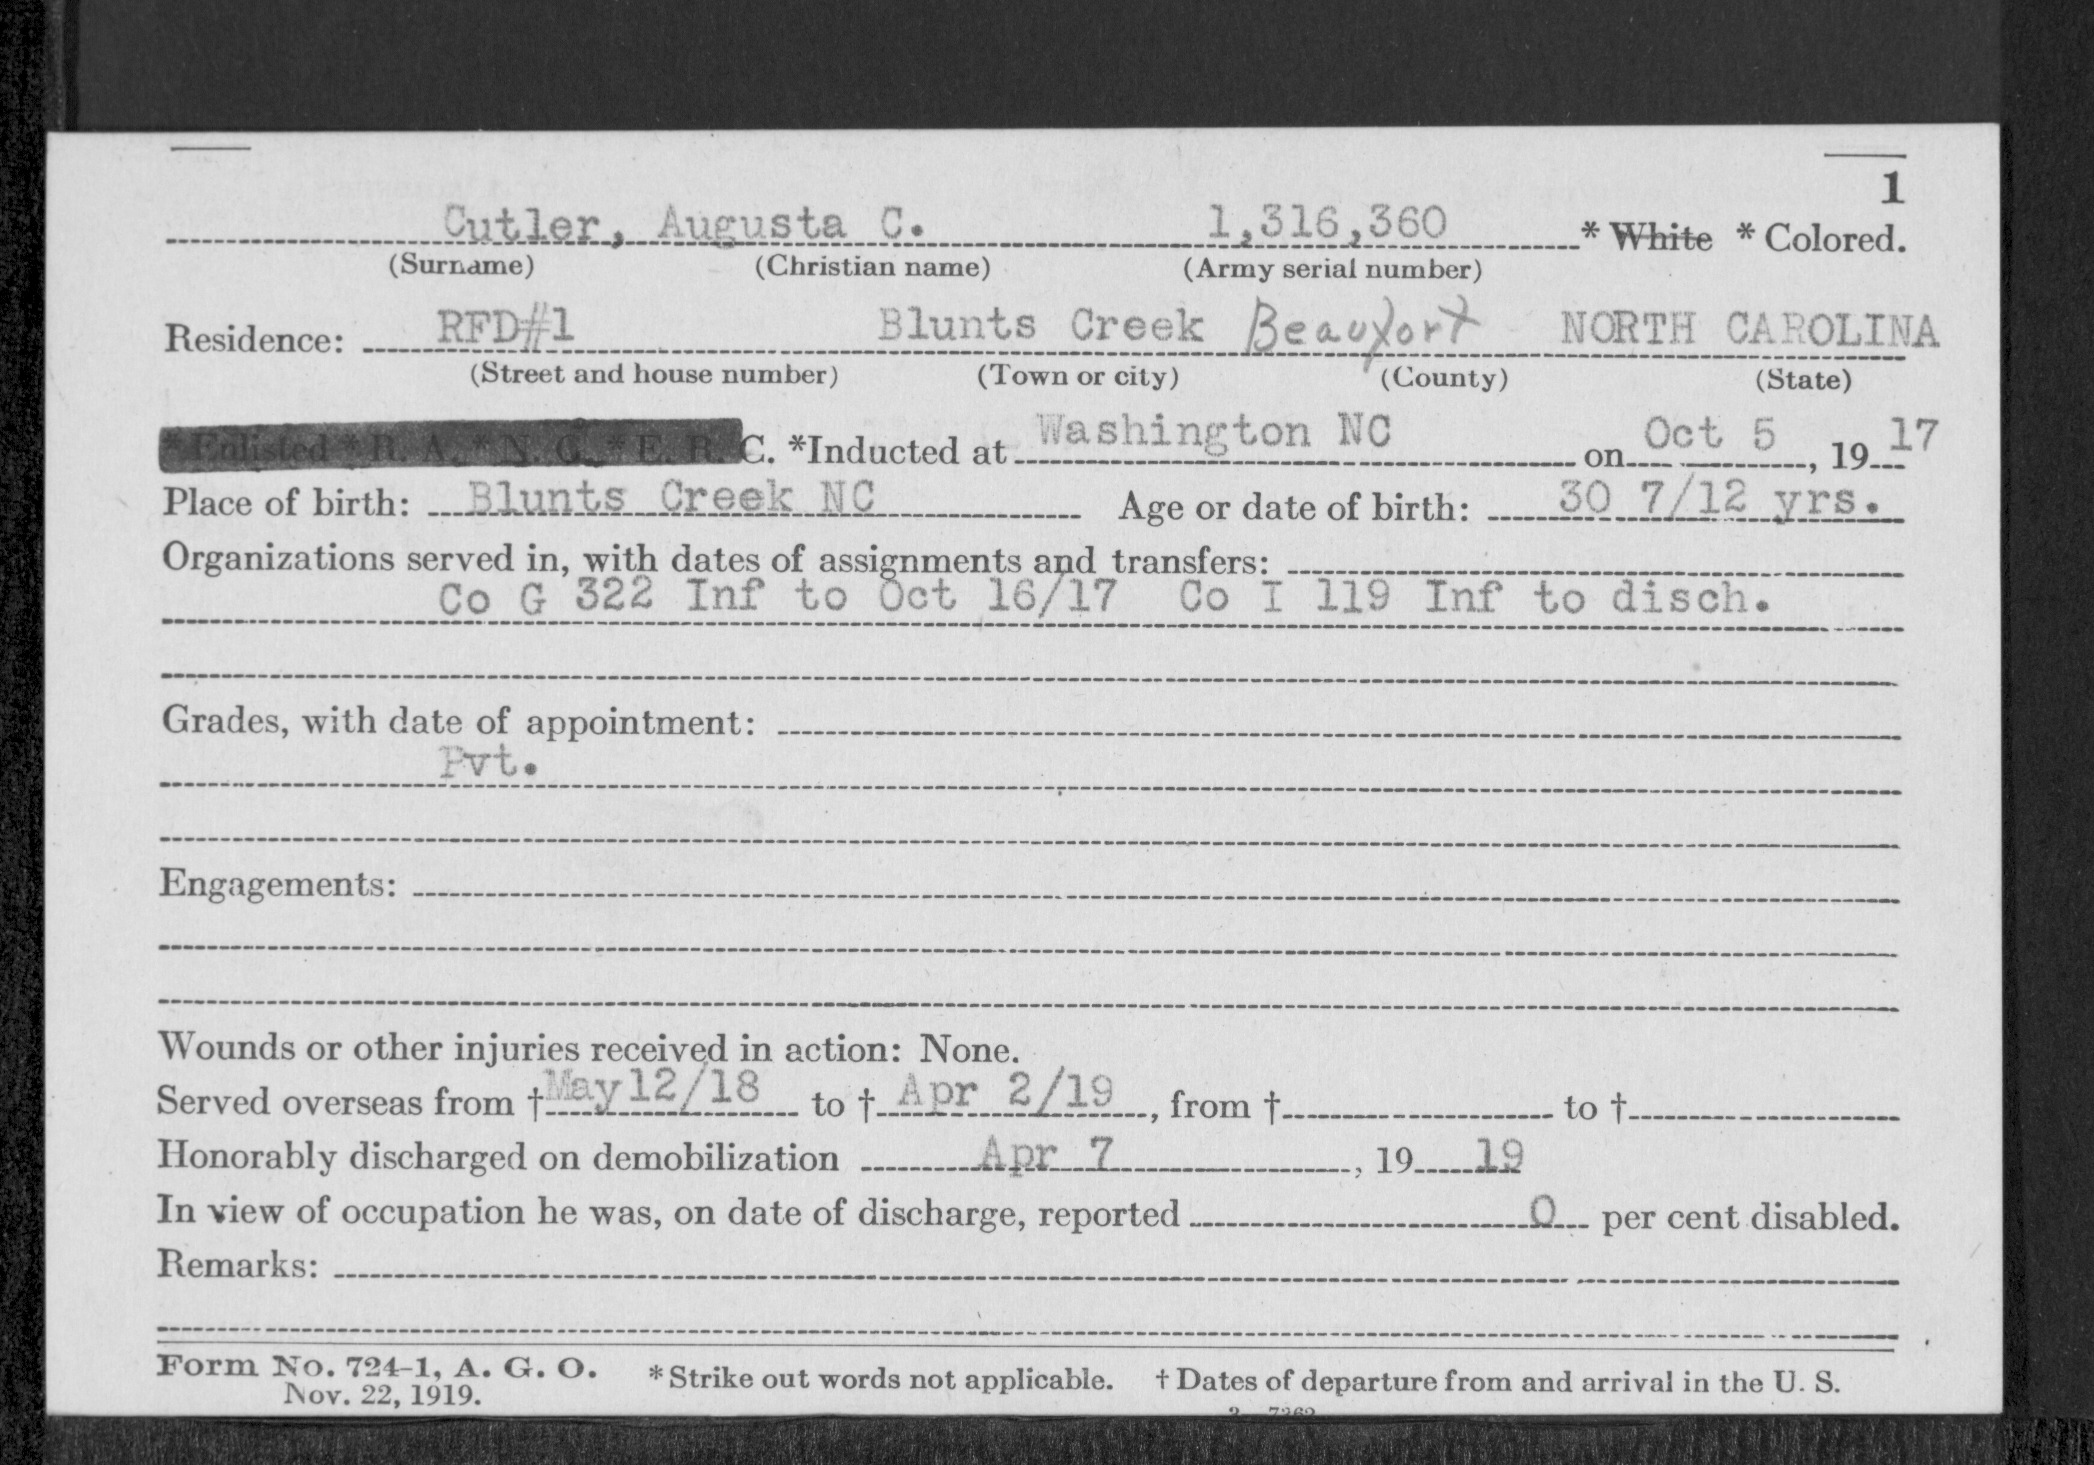 1
Cutler, Augusta C. 1,316,360 * White * Colored.
(Surname) (Christian name) (Army serial number)
Residence: RFD#1 Blunts Creek Beaufort NORTH CAROLINA
(Street and house number) (Town or city) (County) (State)
* Enlisted * R. A. * N. G. * E. R. C. *Inducted at Washington NC on Oct 5, 19 17
Place of birth: Blunts Creek NC Age or date of birth: 30 7/12 yrs.
Organizations served in, with dates of assignments and transfers:
Co G 322 Inf to Oct 16/17 Co I 119 Inf to disch.
Grades, with date of appointment:
Pvt.
Engagements:
Wounds or other injuries received in action: None.
Served overseas from † May 12/18 to † Apr 2/19, from † to †
Honorably discharged on demobilization Apr 7, 19 19
In view of occupation he was, on date of discharge, reported 0 per cent disabled.
Remarks:
Form No. 724-1, A. G. O. * Strike out words not applicable. † Dates of departure from and arrival in the U. S.
Nov. 22, 1919.